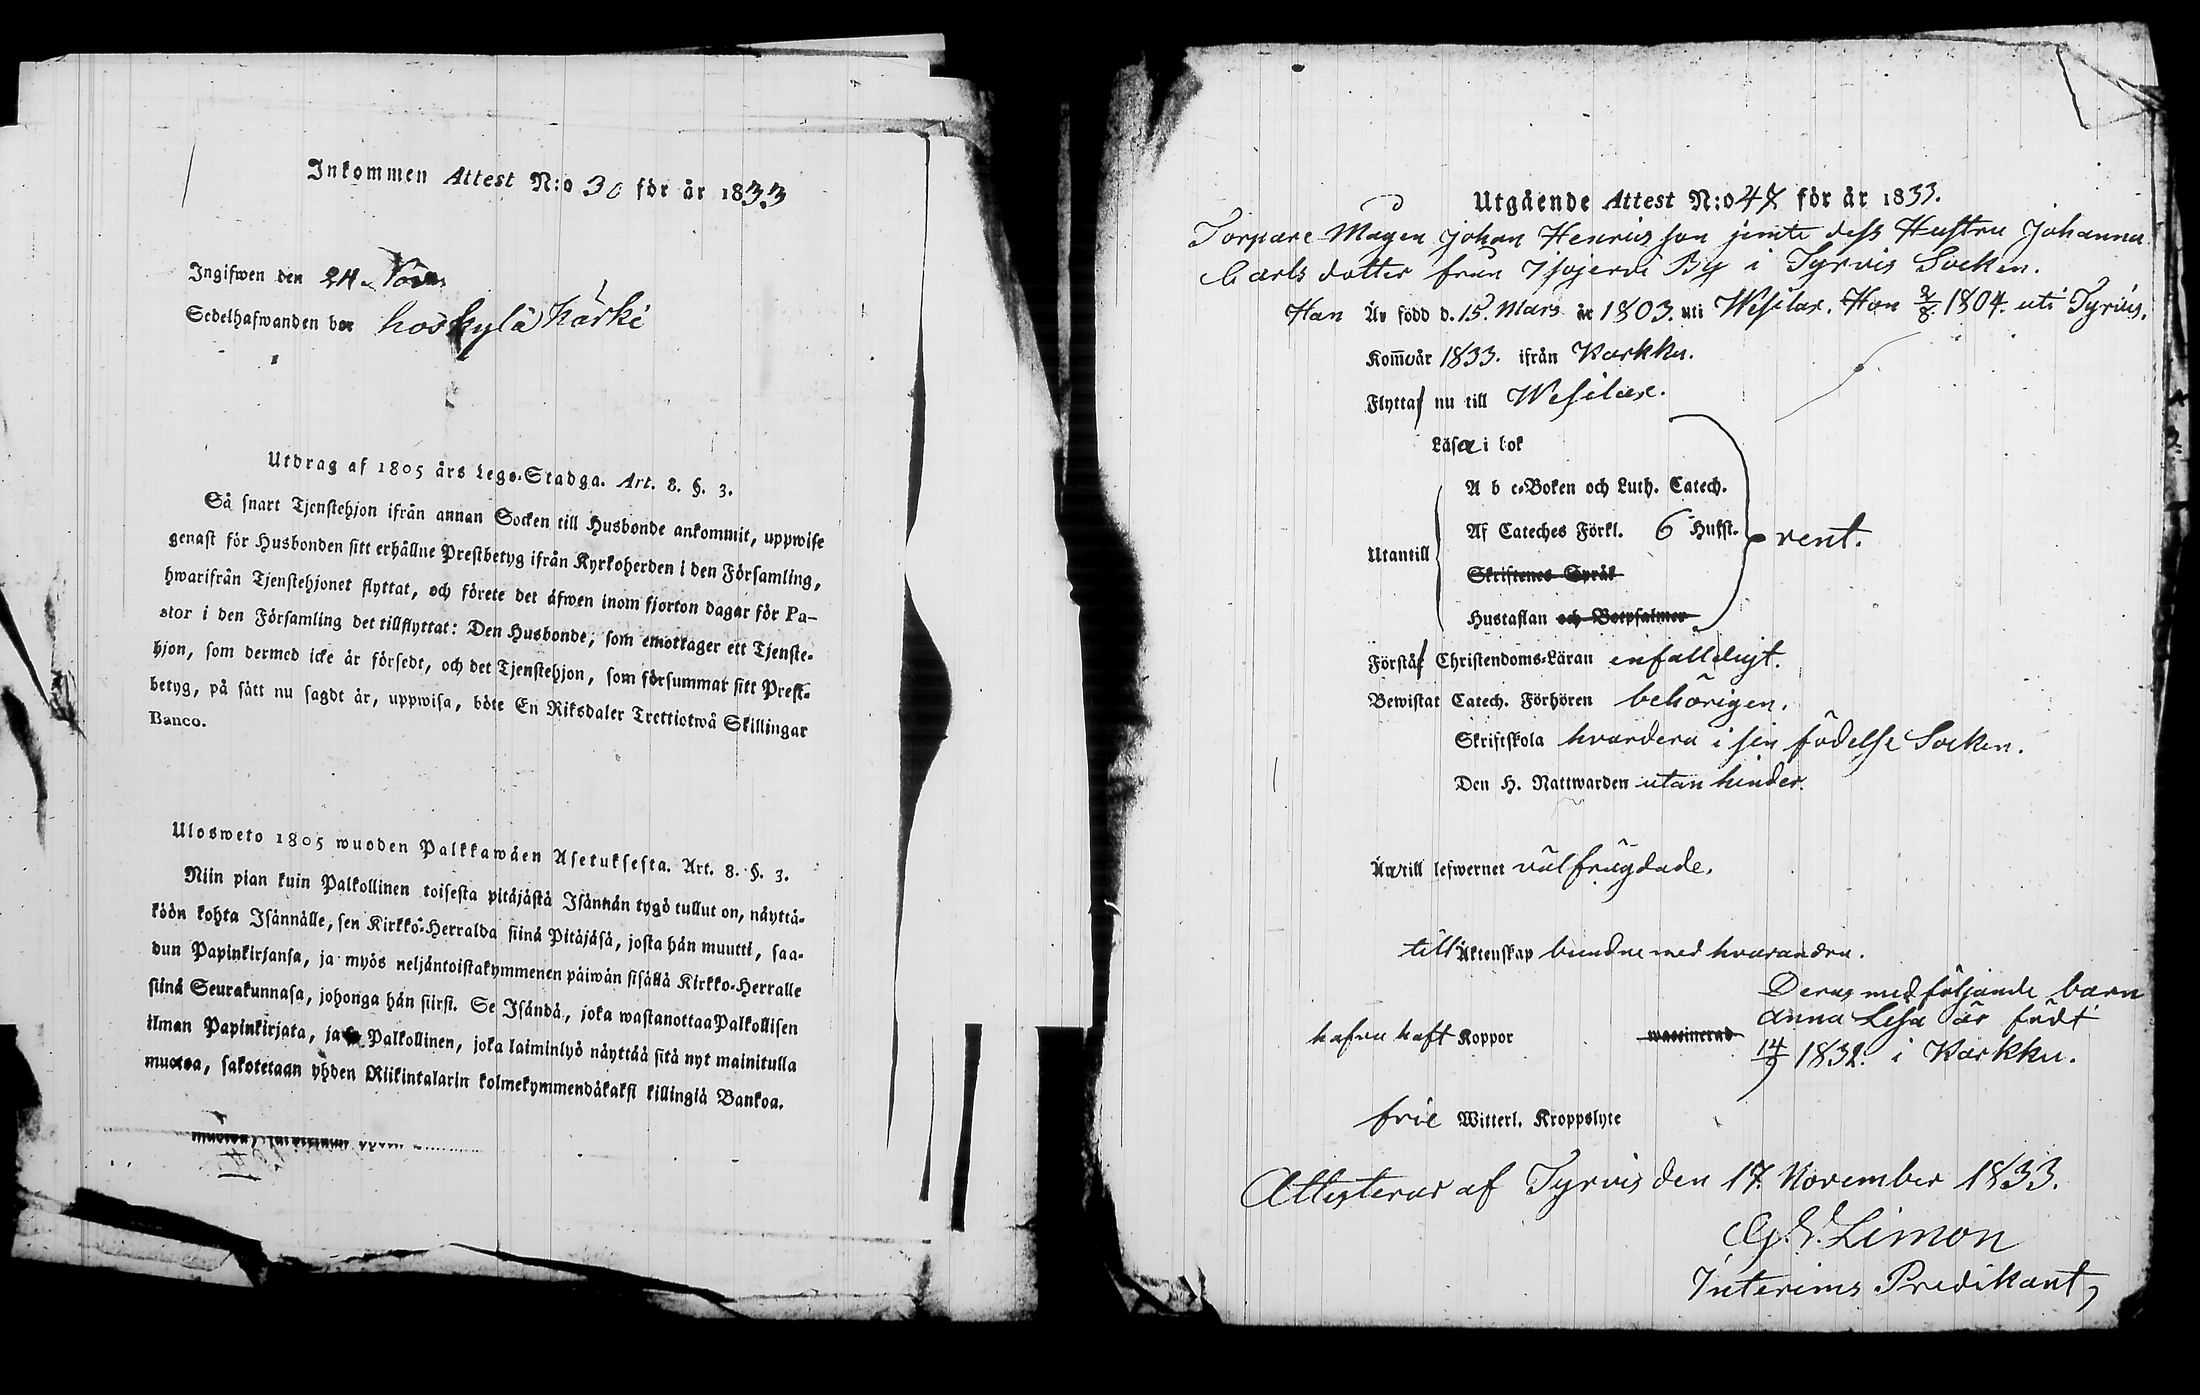 Inkommen Attest N:o 30 för år 1833
Ingifwen den 24 Nov.
Sedelhafwanden bor hoskylä Kärki
Utdrag af 1805 års Lego-Stadga. Art. 8. §. 3.
Så snart Tjenstehjon ifrån annan Socken till Husbonde ankommit, uppwise
genast för Husbonden sitt erhållne Prestbetyg ifrån Kyrkoherden i den Församling,
hwarifrån Tjenstehjonet flyttat, och förete det äfwen inom fjorton dagar för Pa-
stor i den Församling det tillflyttat: Den Husbonde, som emottager ett Tjenste-
hjon, som dermed icke är försedt, och det Tjenstehjon, som försummar sitt Prest-
betyg, på sätt nu sagdt är, uppwisa, böte En Riksdaler Trettiotwå Skillingar
Banco.
Ulosweto 1805 wuoden Palkkawäen Asetuksesta. Art. 8. §. 3.
Niin pian kuin Palkollinen toisesta pitäjästä Isännän tygö tullut on, näyttä-
köön kohta Isännälle, sen Kirkko-Herralda siinä Pitäjäsä, josta hän muutti, saa-
dun Papinkirjansa, ja myös neljäntoistakymmenen päiwän sisällä Kirkko-Herralle
siinä Seurakunnasa, johonga hän siirsi. Se Isändä, joka wastanottaa Palkollisen
ilman Papinkirjata, ja se Palkollinen, joka laiminlyö näyttää sitä nyt mainitulla
muotoa, sakotetaan yhden Riikintalarin kolmekymmendäkaksi killingiä Bankoa.
Utgående Attest N:o 47 för år 1833.
Torpare Mågen Johan Henricsson jemte dess Hustru Johanna
Carls dotter från Isojervi By i Tyrvis Socken.
Han Är född d. 15. Mars år 1803. uti Wesilax. Hon 2/8. 1804. uti Tyrvis.
Kom̅o år 1833. ifrån Karkku.
Flytta nu till Wesilax.
Läsa i bok
A b c-Boken och Luth. Catech.
Af Cateches Förkl. 6 Hufst.
Utantill
rent.
Skriftenes Språk
Hustaflan och Botpsalmer
Förstå Christendoms-Läran enfaldigt.
Bewistat Catech. Förhören behörigen.
Skriftskola hvardera i sin födelse Socken.
Den H. Nattwarden utan hinder.
Äro till lefwernet välfrägdade.
till Äktenskap bundne med hvarandra.
Deras medföljande barn
Anna Lisa är född
14/9 1832. i Karkku.
hafva haft Koppor waccinerad
frie Witterl. Kroppslyte
Attesterar af Tyrvis den 17. November 1833.
G. E. Limon
Interims Predikant,